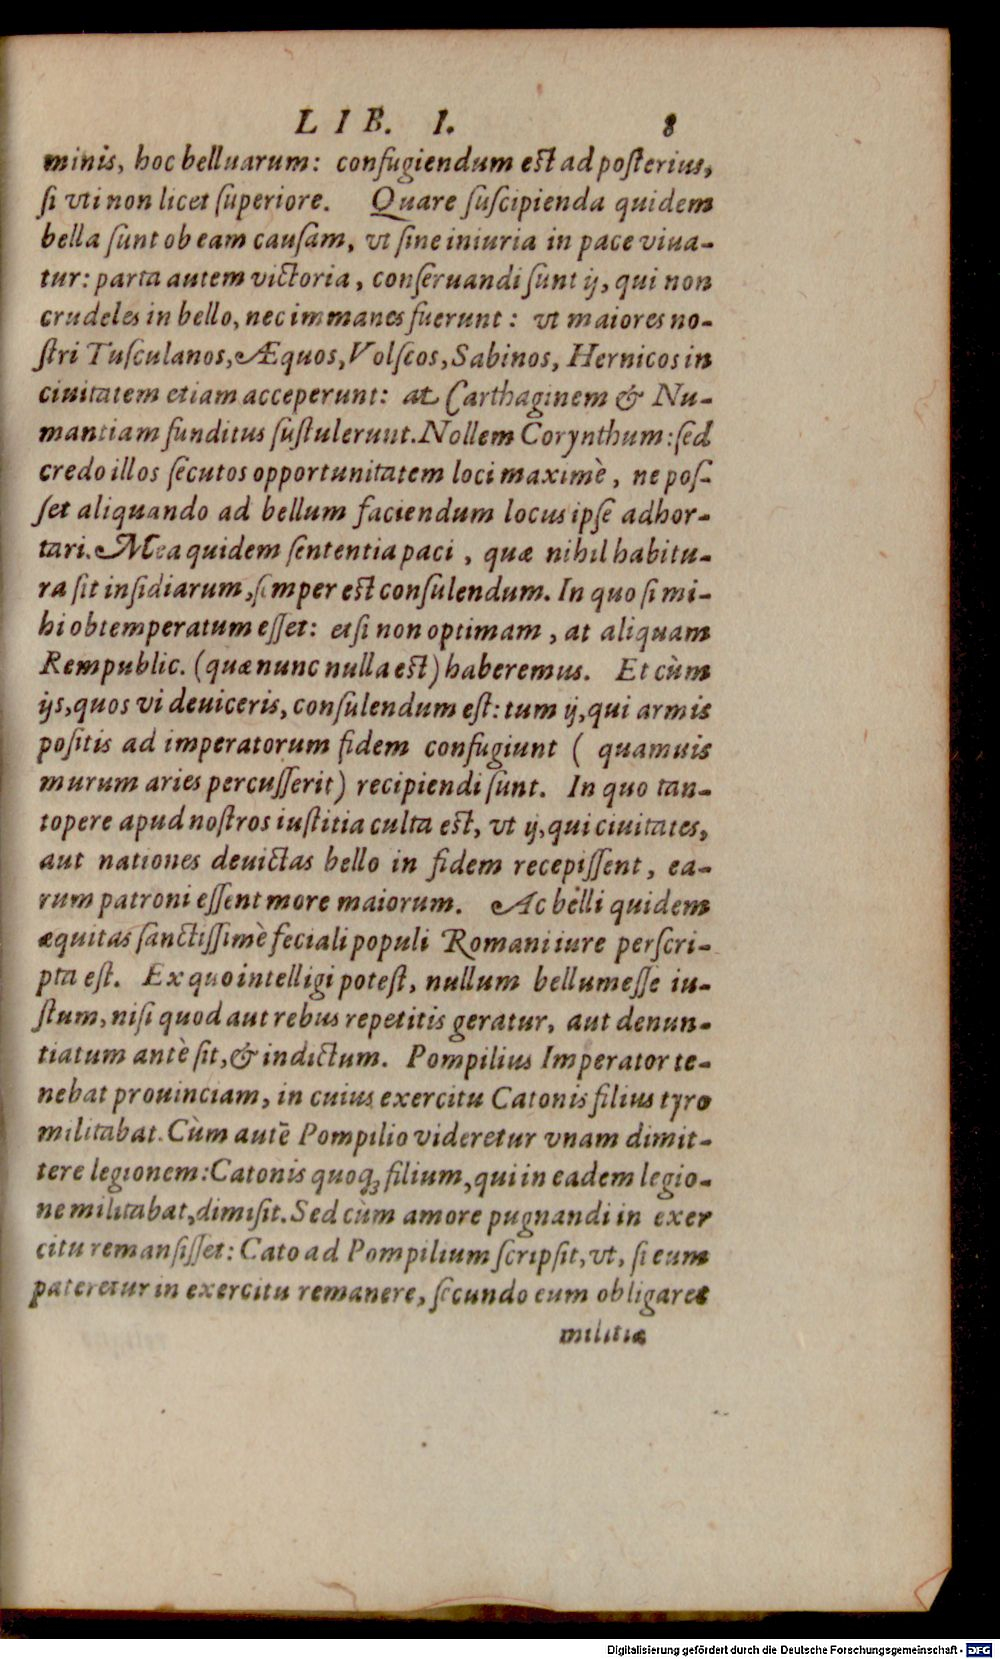 LIB. I. 8
minis, hoc belluarum: confugiendum est ad posterius,
si vti non licet superiore. Quare suscipienda quidem
bella sunt ob eam causam, vt sine iniuria in pace viua-
tur: parta autem victoria, conseruandi sunt ij, qui non
crudeles in bello, nec immanes fuerunt: vt maiores no-
stri Tusculanos, Æquos, Volscos, Sabinos, Hernicos in
ciuitatem etiam acceperunt: at Carthaginem & Nu-
mantiam funditus sustulerunt. Nollem Corynthum: sed
credo illos secutos opportunitatem loci maximè, ne pos-
set aliquando ad bellum faciendum locus ipse adhor-
tari. Mea quidem sententia paci, quæ nihil habitu-
ra sit insidiarum, semper est consulendum. In quo si mi-
hi obtemperatum esset: etsi non optimam, at aliquam
Rempublic. (quæ nunc nulla est) haberemus. Et cùm
ijs, quos vi deuiceris, consulendum est: tum ij, qui armis
positis ad imperatorum fidem confugiunt ( quamuis
murum aries percusserit) recipiendi sunt. In quo tan-
topere apud nostros iustitia culta est, vt ij, qui ciuitates,
aut nationes deuictas bello in fidem recepissent, ea-
rum patroni essent more maiorum. Ac belli quidem
æquitas sanctissimè feciali populi Romani iure perscri-
pta est. Ex quo intelligi potest, nullum bellum esse iu-
stum, nisi quod aut rebus repetitis geratur, aut denun-
tiatum antè sit, & indictum. Pompilius Imperator te-
nebat prouinciam, in cuius exercitu Catonis filius tyro
militabat. Cùm autē Pompilio videretur vnam dimit-
tere legionem: Catonis quoq; filium, qui in eadem legio-
ne militabat, dimisit. Sed cùm amore pugnandi in exer
citu remansisset: Cato ad Pompilium scripsit, vt, si eum
pateretur in exercitu remanere, secundo eum obligaret
militiæ
Digitalisierung gefördert durch die Deutsche Forschungsgemeinschaft - DFG